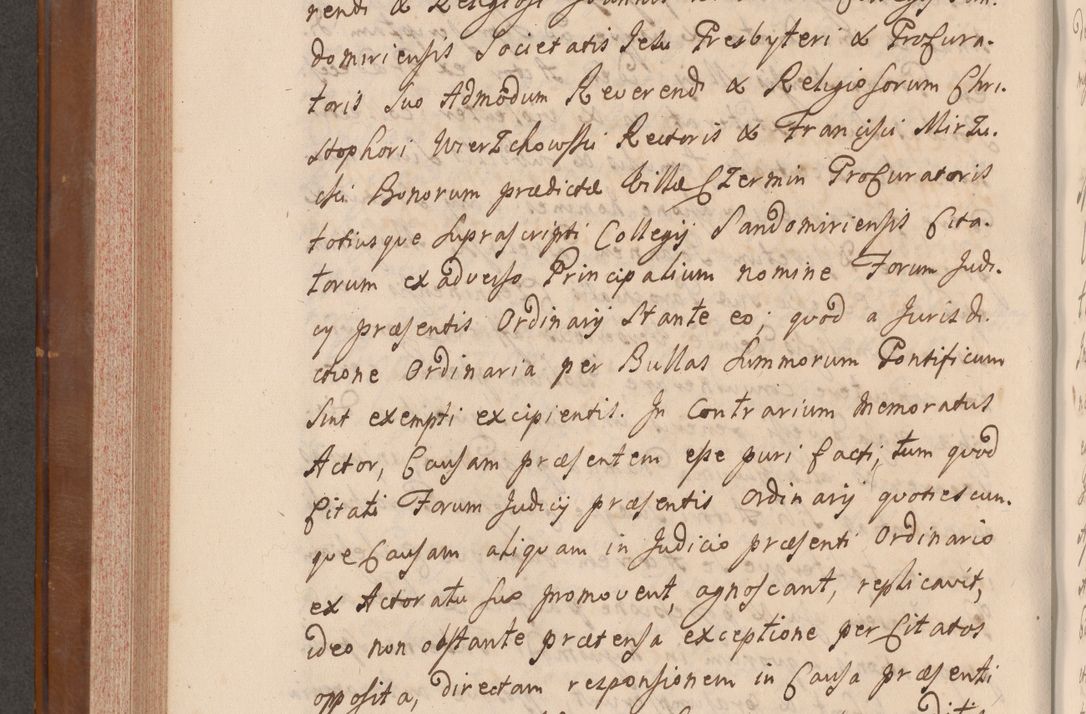 rendi & Religiosi Joannis
domiriensis Societatis Jesu Presbyteri & Procura-
toris suo Admodum Reverendi & Religiosorum Chri-
stophori Wierzchowski Rectoris & Francisci Mirzu-
cki Bonorum prædictæ Villæ Czermin Procuratoris
totiusque suprascripti Collegij Sandomiriensis Cita-
torum ex adverso Principalium nomine Forum Judi-
cij præsentis Ordinarij Stante eo; quod a Jurisdi-
ctione Ordinaria per Bullas Summorum Pontificum
sint exempti excipientis. In Contrarium Memoratus
Actor, Causam præsentem esse puri facti, tum quod
Citati Forum Judicij præsentis Ordinarij quotiescun-
que Causam aliquam in Judicio præsenti Ordinario
ex Actoratu suo promovent, agnoscant, replicavit,
ideo non obstante prætensa exceptione per Citatos
opposita, directam responsionem in Causa præsenti